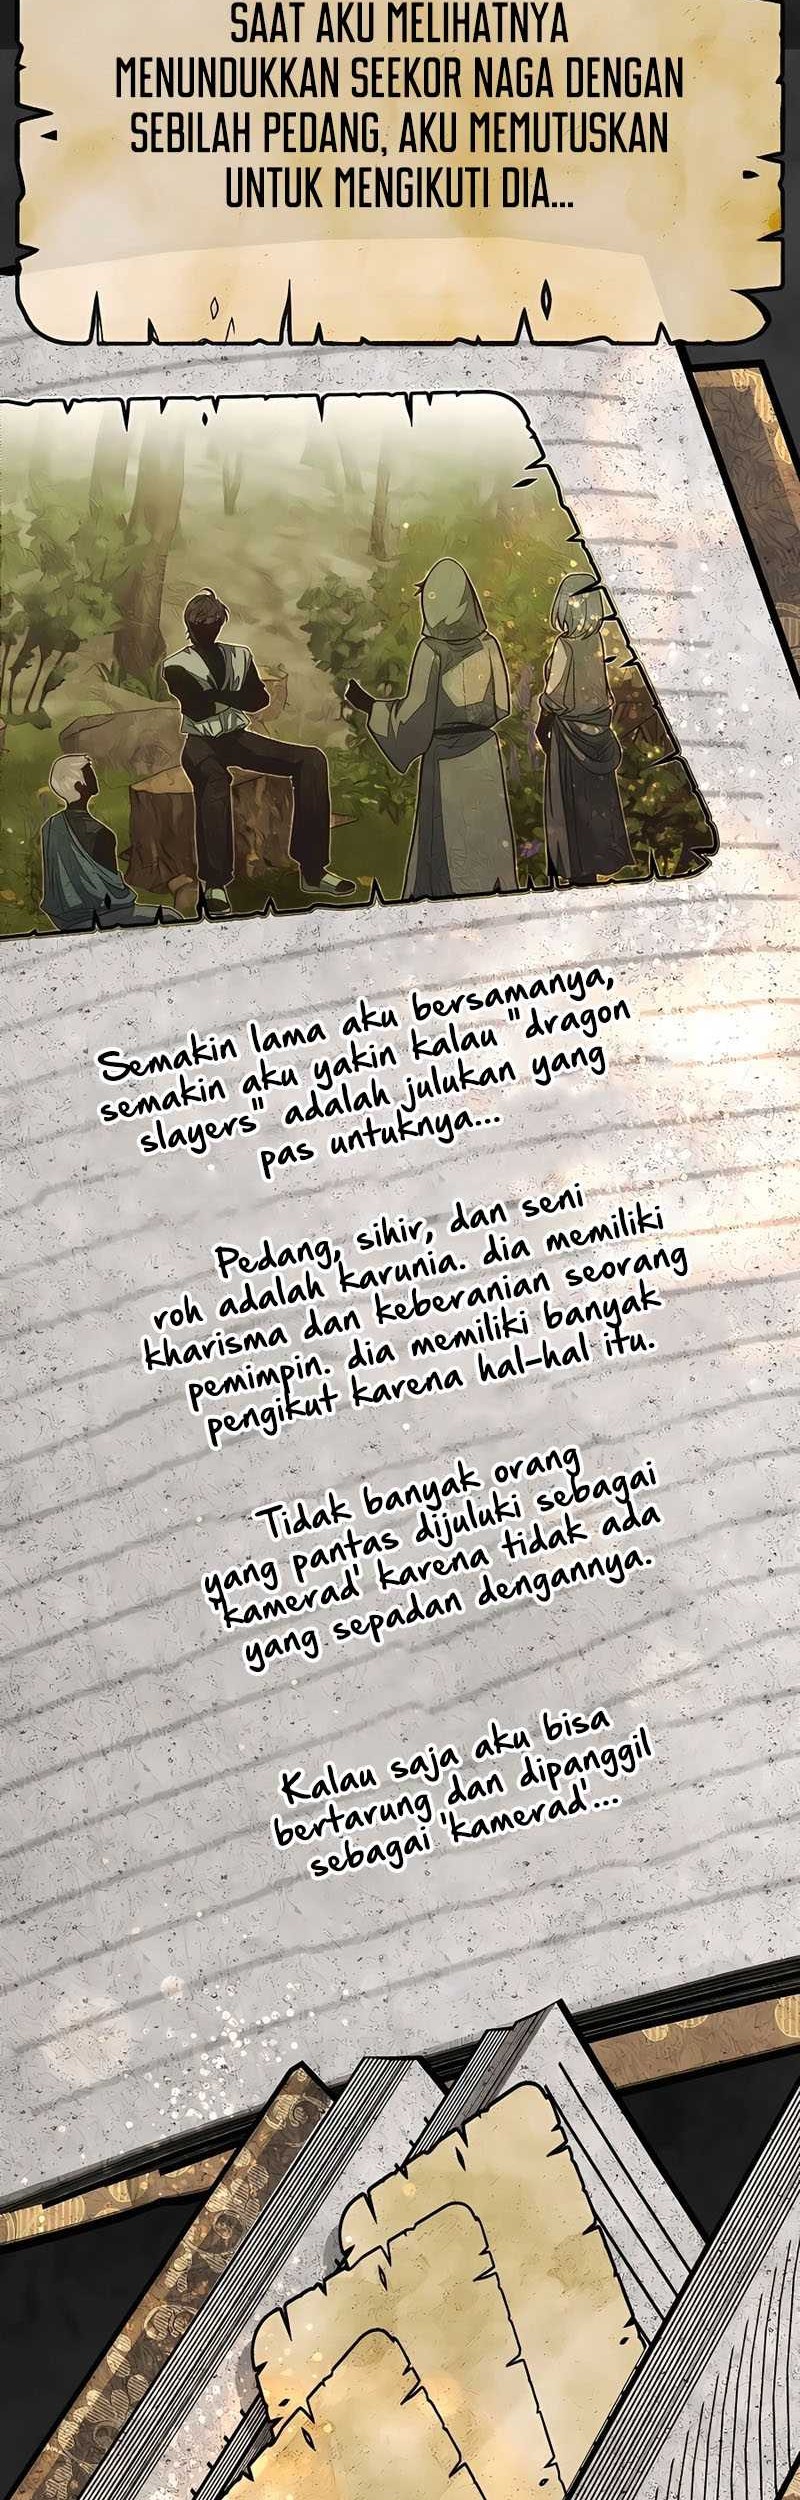 SAAT AKU MELIHATNYA
MENUNDUKKAN SEEKOR NAGA DENGAN
SEBILAH PEDANG, AKU MEMUTUSKAN
UNTUK MENGIKUTI DIA...
Semakin lama aku bersamanya,
semakin aku yakin kalau "dragon
slayers" adalah julukan yang
pas untuknya...
Pedang, sihir, dan seni
roh adalah karunia. dia memiliki
kharisma dan keberanian seorang
pemimpin. dia memiliki banyak
pengikut karena hal-hal itu.
Tidak banyak orang
yang pantas dijuluki sebagai
'kamerad' karena tidak ada
yang sepadan dengannya.
Kalau saja aku bisa
bertarung dan dipanggil
sebagai 'kamerad'...